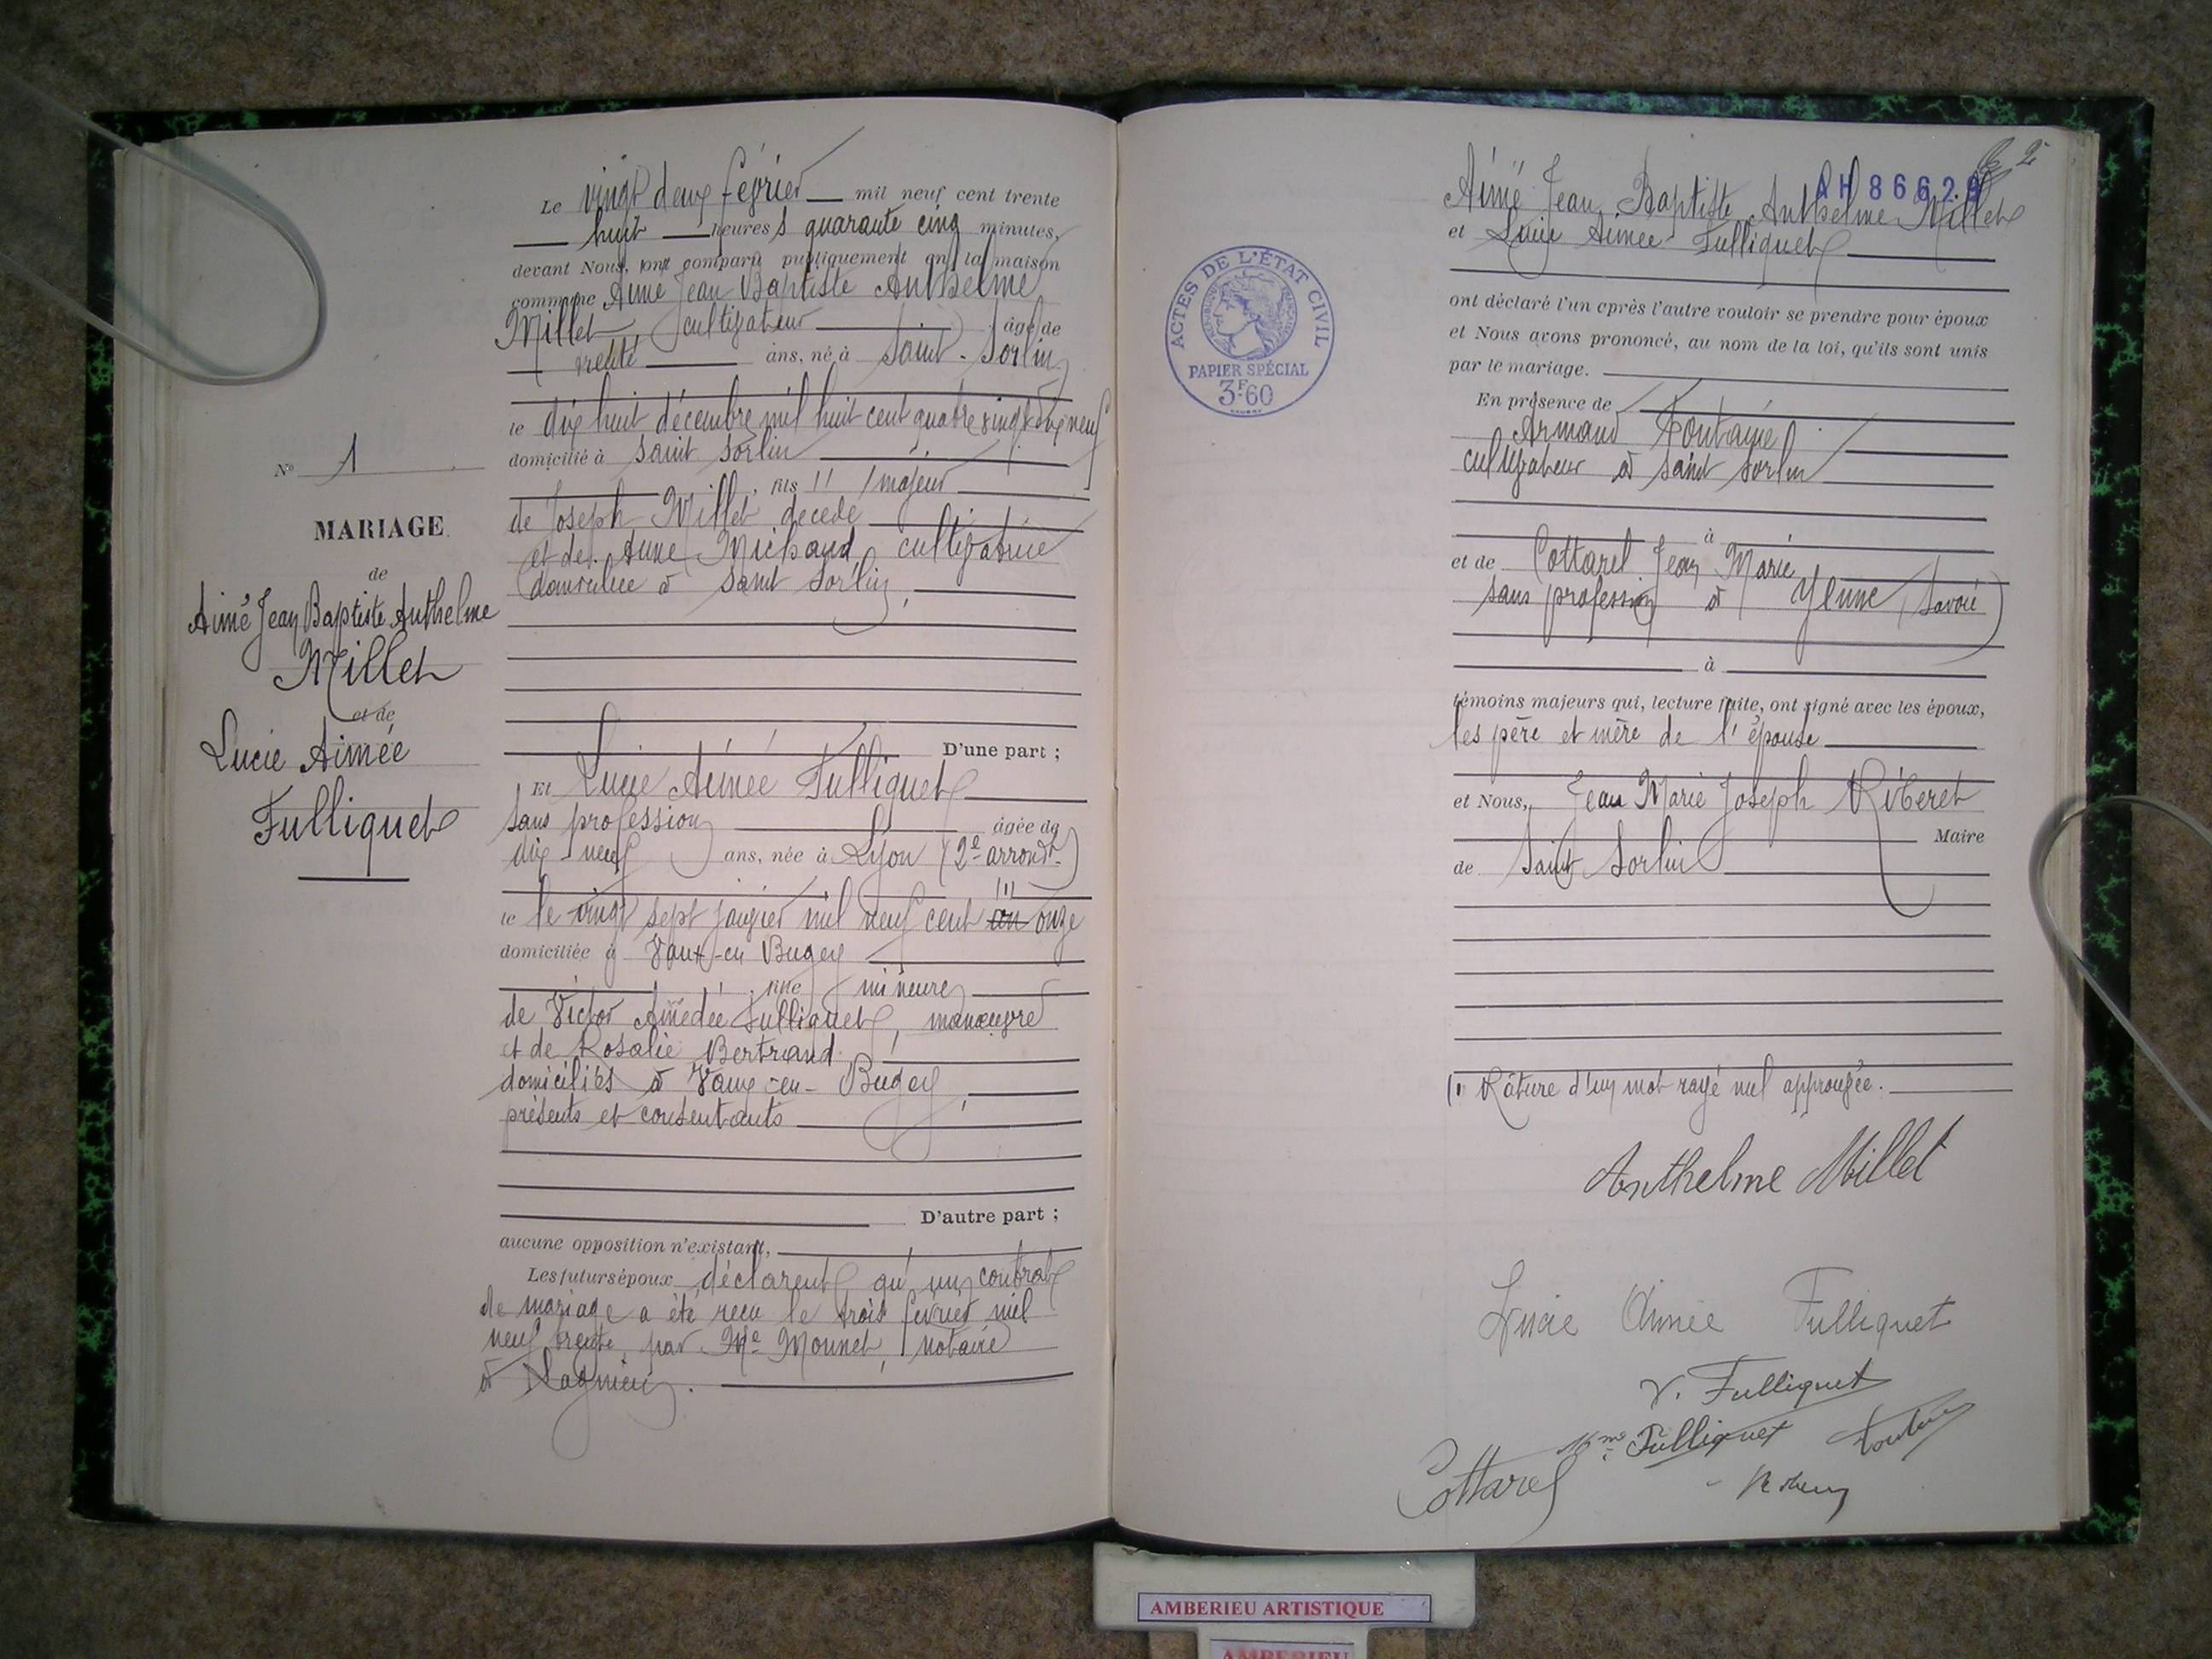 Le vingt deux février mil neuf cent trente
huit heures quarante cinq minutes,
devant Nous, ont comparu publiquement en la maison
commune Aimé Jean Baptiste Anthelme
Millet cultivateur âgé de
trente ans, né à Saint-Sorlin
le dix huit décembre mil huit cent quatre vingt dix neuf
domicilié à Saint Sorlin
fils majeur
de Joseph Millet décédé
et de Anne Michaud, cultivatrice
domiciliée à Saint Sorlin,
N° 1
MARIAGE
de
Aimé Jean Baptiste Anthelme
Millet
et de
Lucie Aimée
Fulliquet
D'une part ;
Et Lucie Aimée Fulliquet
sans profession âgée de
dix-neuf ans, née à Lyon (2e arrondt)
le le vingt sept janvier mil neuf cent an (1) onze
domiciliée à Vaux-en Bugey
fille mineure
de Victor Amédée Fulliquet, manœuvre
et de Rosalie Bertrand
domiciliés à Vaux-en-Bugey,
présents et consentants
D'autre part ;
aucune opposition n'existant,
Les futurs époux déclarent qu'un contrat
de mariage a été reçu le trois février mil
neuf trente par Me Monnet, notaire
à Lagnieu.
2
AH 86629
Aimé Jean Baptiste Anthelme Millet
et Lucie Aimée Fulliquet
ACTES DE L'ÉTAT CIVIL
RÉPUBLIQUE FRANÇAISE
PAPIER SPÉCIAL
3F60
ont déclaré l'un après l'autre vouloir se prendre pour époux
et Nous avons prononcé, au nom de la loi, qu'ils sont unis
par le mariage.
En présence de
Armand Fontaine
cultivateur à Saint Sorlin
à
et de Cottarel Jean Marie
sans profession à Yenne (Savoie)
à
témoins majeurs qui, lecture faite, ont signé avec les époux,
les père et mère de l'épouse
et Nous, Jean Marie Joseph Riberet
Maire
de Saint Sorlin
(1) Râture d'un mot rayé nul approuvée.
Anthelme Millet
Lucie Aimée Fulliquet
V. Fulliquet
Mme Fulliquet
Cottarel
AMBERIEU ARTISTIQUE
AMBERIEU